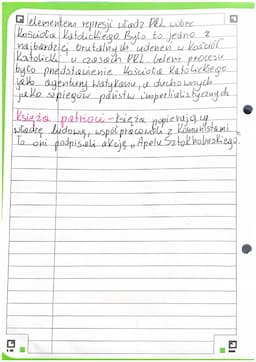 elementem represji władz PRL wobec
Kościoła Katolickiego. Było to jedno z
najbardziej brutalnych uderzeń w Kościół
Katolicki w czasach PRL. Celem procesu
było przedstawienie Kościoła Katolickiego
jako agentury Watykanu, a duchownych
jako szpiegów państw imperialistycznych
Księża patrioci - księża popierający
władzę ludową, współpracowali z komunistami.
To oni podpisali akcję „Apelu Sztokholmskiego.